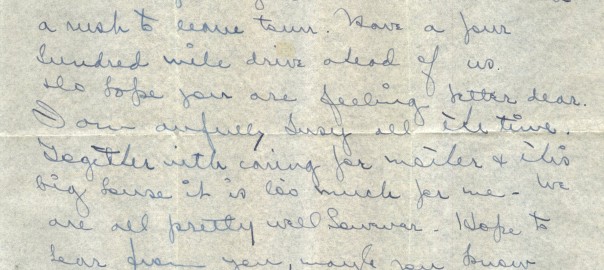 a rush to leave town. Have a four
hundred mile drive ahead of us.
Do hope you are feeling better dear.
I am awfully busy all the time.
Together with caring for mother & this
big house it is too much for me - We
are all pretty well however. Hope to
hear from you, maybe you know